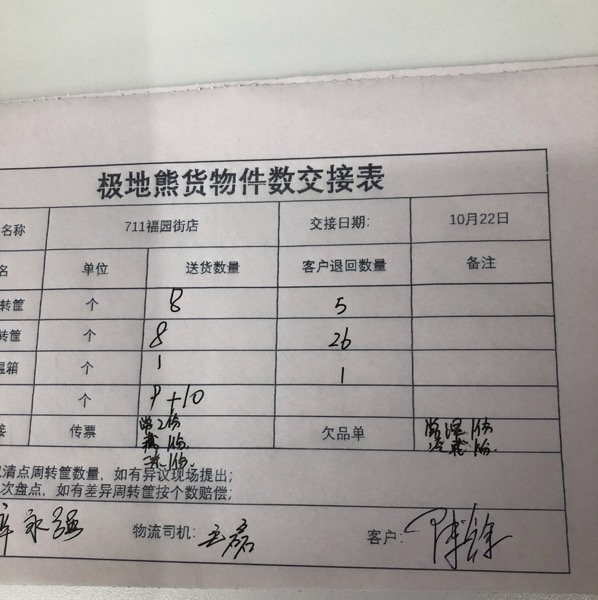 极地熊货物件数交接表
名称 711福园街店 交接日期: 10月22日
名 单位 送货数量 客户退回数量 备注
转筐 个 8 5
转筐 个 8 26
温箱 个 1 1
个 9+10
接 传票 常2份 欠品单 常温1份
1份 冷藏1份
1份
清点周转筐数量，如有异议现场提出;
次盘点，如有差异周转筐按个数赔偿;
永强 物流司机: 王磊 客户: